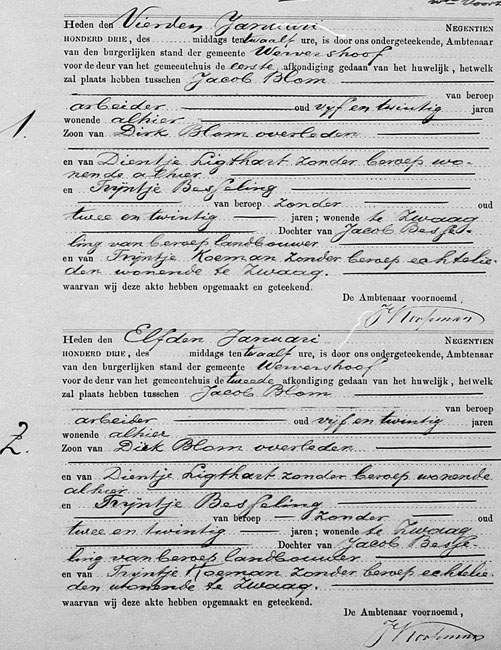 Heden den Vierden Januari NEGENTIEN
HONDERD DRIE, des middags ten twaalf ure, is door ons ondergeteekende, Ambtenaar
van den burgerlijken stand der gemeente Wervershoof
voor de deur van het gemeentehuis de eerste afkondiging gedaan van het huwelijk, hetwelk
zal plaats hebben tusschen Jacob Blom
van beroep
arbeider oud vijf en twintig jaren
1.
wonende alhier
Zoon van Dirk Blom overleden
en van Dientje Ligthart zonder beroep wo-
nende alhier
en Trijntje Besseling
van beroep zonder oud
twee en twintig jaren; wonende te Zwaag
Dochter van Jacob Besse-
ling van beroep landbouwer
en van Trijntje Koeman zonder beroep echtelie-
den wonende te Zwaag.
waarvan wij deze akte hebben opgemaakt en geteekend.
De Ambtenaar voornoemd,
Heden den Elfden Januari NEGENTIEN
HONDERD DRIE, des middags ten twaalf ure, is door ons ondergeteekende, Ambtenaar
van den burgerlijken stand der gemeente Wervershoof
voor de deur van het gemeentehuis de tweede afkondiging gedaan van het huwelijk, hetwelk
zal plaats hebben tusschen Jacob Blom
van beroep
arbeider oud vijf en twintig jaren
2.
wonende alhier
Zoon van Dirk Blom overleden
en van Dientje Ligthart zonder beroep wonende
alhier
en Trijntje Besseling
van beroep zonder oud
twee en twintig jaren; wonende te Zwaag
Dochter van Jacob Besse-
ling van beroep landbouwer
en van Trijntje Koeman zonder beroep echtelie-
den wonende te Zwaag.
waarvan wij deze akte hebben opgemaakt en geteekend.
De Ambtenaar voornoemd,